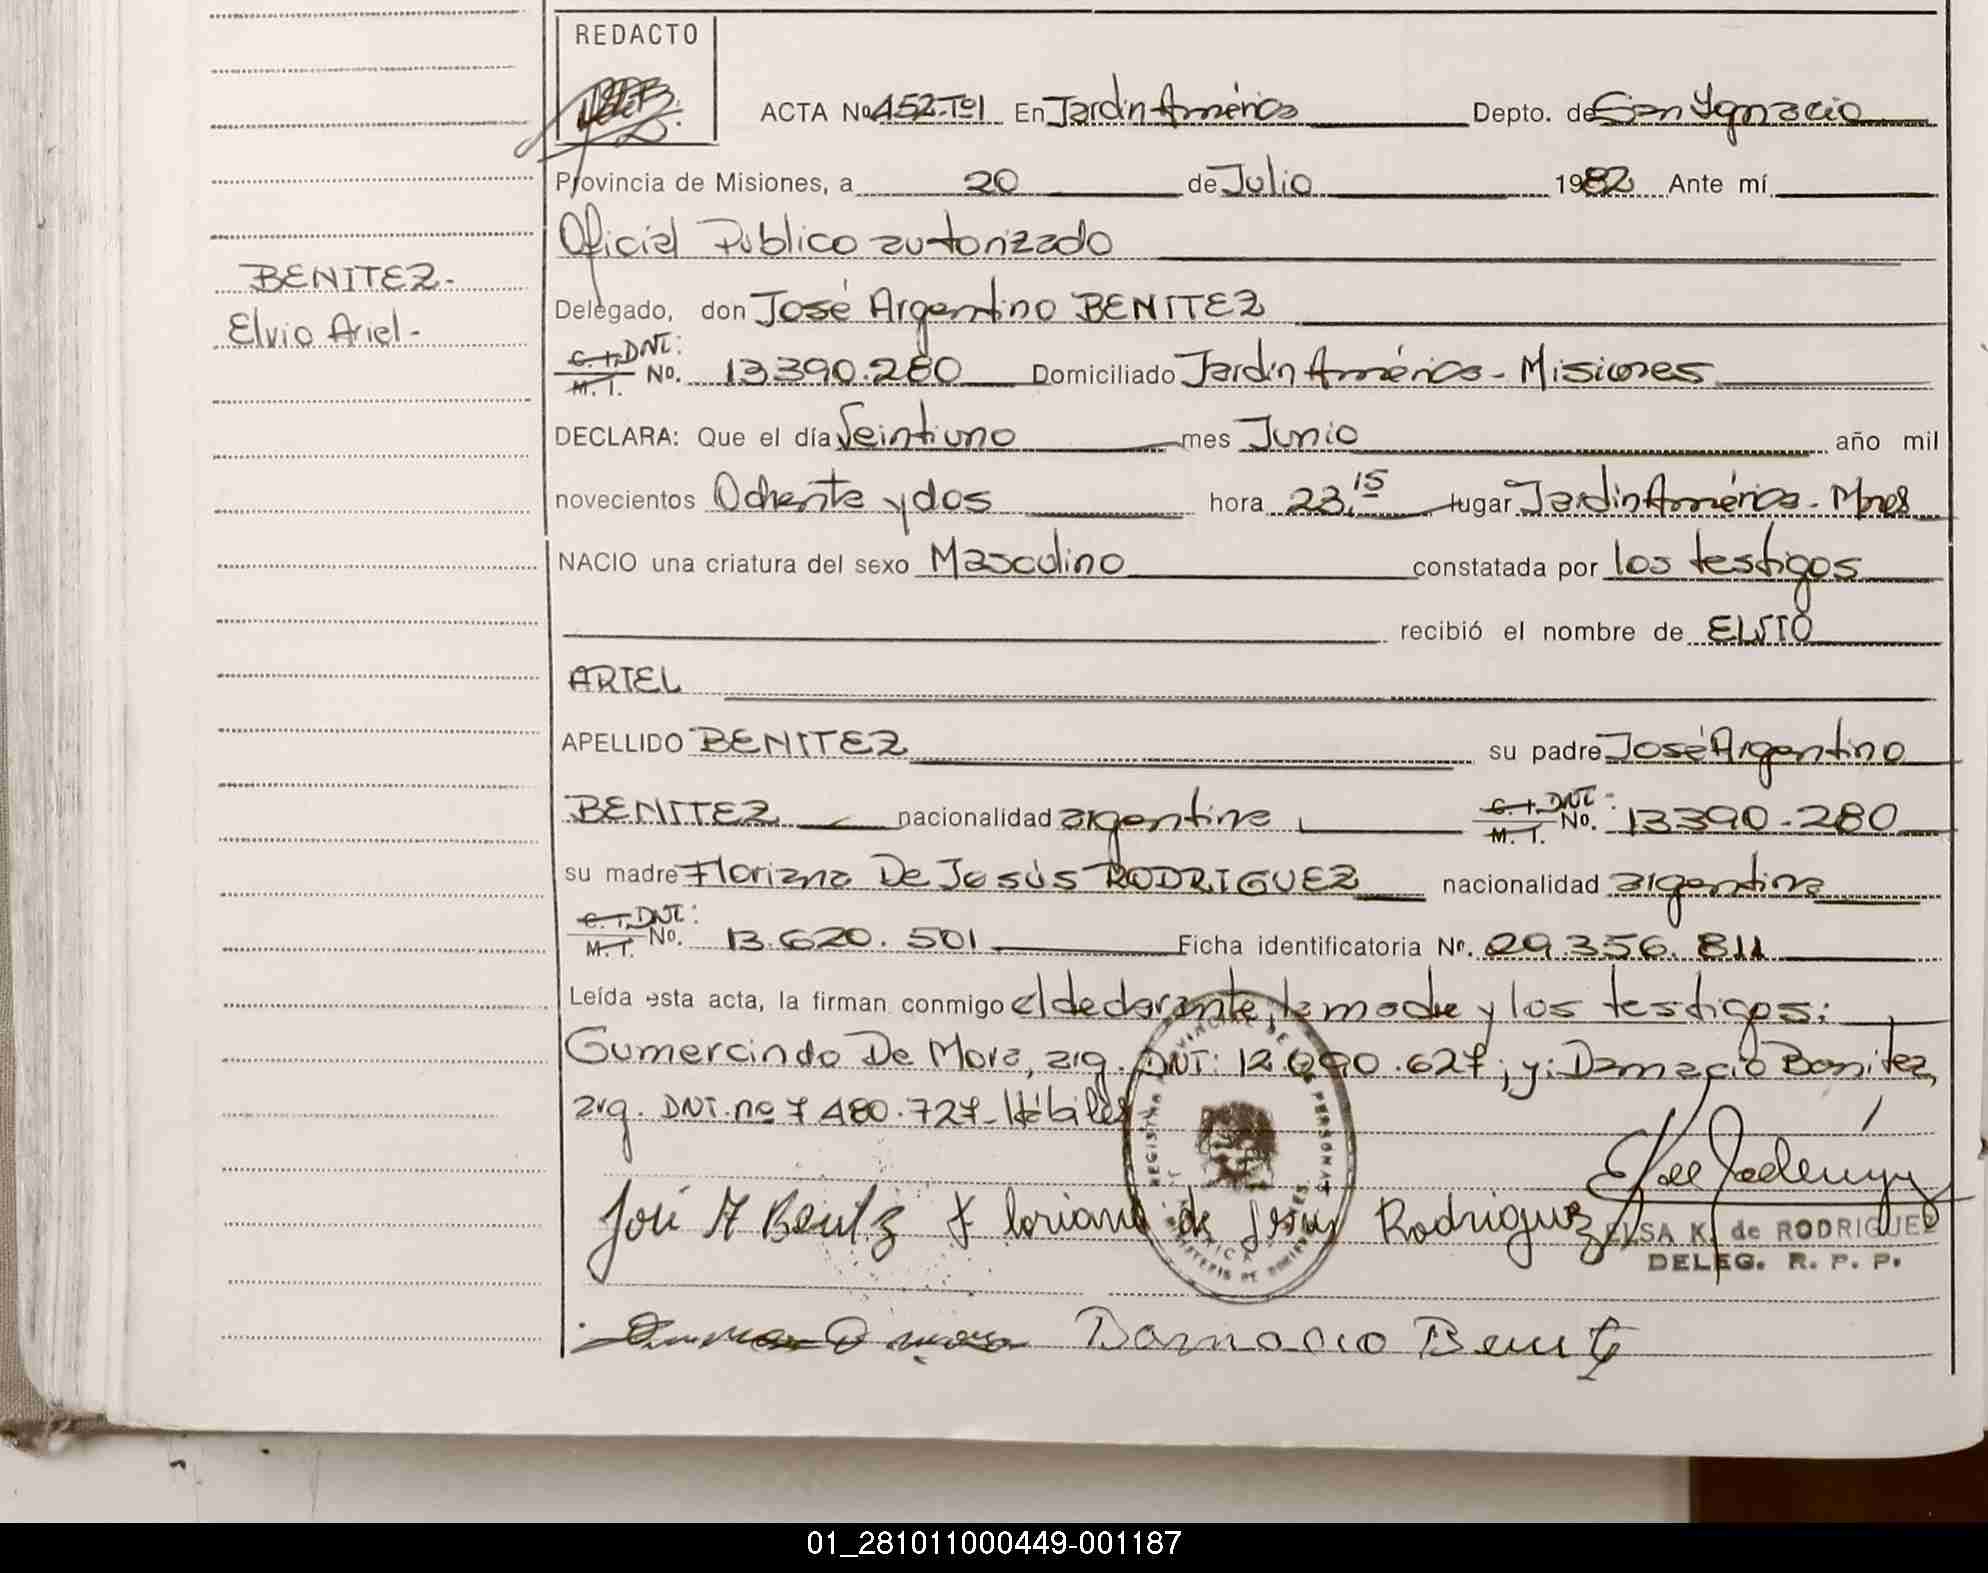 REDACTO
ACTA No 452-Tº1 En Jardín América Depto. de San Ygnacio
Provincia de Misiones, a 20 de Julio 1982 Ante mí
Oficial Publico autorizado
BENITEZ-
Elvio Ariel-
Delegado, don José Argentino BENITEZ
C. I. DNI: M. I. No. 13.390.280 Domiciliado Jardín América - Misiones
DECLARA: Que el día Veintiuno mes Junio año mil
novecientos Ochenta y dos hora 23,15 lugar Jardín América - Mnes
NACIO una criatura del sexo Masculino constatada por los testigos
recibió el nombre de ELVIO
ARIEL
APELLIDO BENITEZ su padre José Argentino
BENITEZ nacionalidad argentina C. I. DNI: M. I. No. 13390-280
su madre Floriana De Jesús RODRIGUEZ nacionalidad argentina
C. I. DNI: M. I. No. 13.620.501 Ficha identificatoria Nº. 29.356.811
Leída esta acta, la firman conmigo el declarante, la madre y los testigos:
Gumercindo De Mora, arg. DNI: 12.090.627; y: Damacio Benitez,
arg. DNI. nº 7480.727- Hábiles
José A Benitez Floriana de Jesus Rodriguez
ELSA K. de RODRIGUEZ
DELEG. R. P. P.
Damacio Benitez
01_281011000449-001187